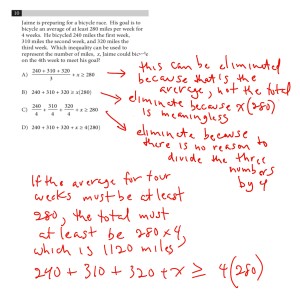 10
Jaime is preparing for a bicycle race. His goal is to
bicycle an average of at least 280 miles per week for
4 weeks. He bicycled 240 miles the first week,
310 miles the second week, and 320 miles the
third week. Which inequality can be used to
represent the number of miles, x, Jaime could bicycle
on the 4th week to meet his goal?
A) (240 + 310 + 320)/3 + x ≥ 280
B) 240 + 310 + 320 ≥ x(280)
C) 240/4 + 310/4 + 320/4 + x ≥ 280
D) 240 + 310 + 320 + x ≥ 4(280)
this can be eliminated
because that's the
average, not the total
eliminate because x(280)
is meaningless
eliminate because
there is no reason to
divide the three
numbers
by 4
If the average for four
weeks must be at least
280, the total must
at least be 280 x 4,
which is 1120 miles,
240 + 310 + 320 + x ≥ 4(280)